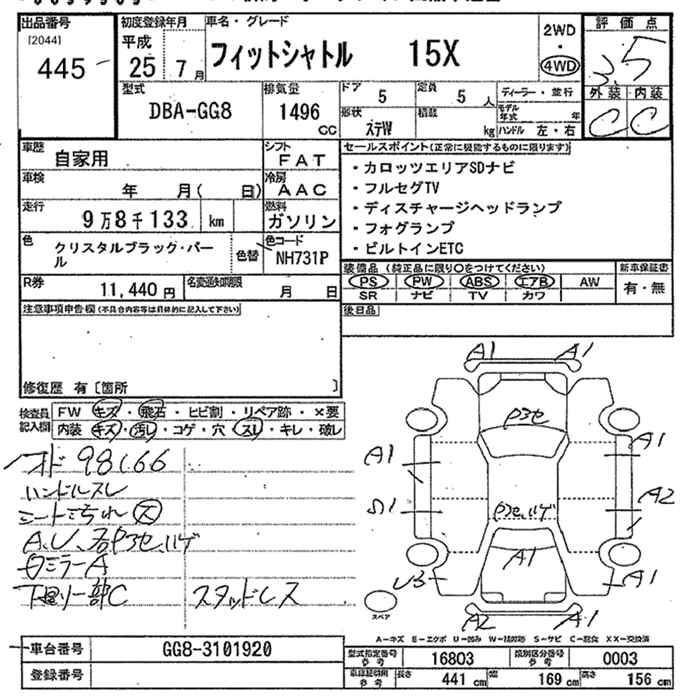 出品番号
[2044]
445
初度登録年月
平成
25 7月
車名・グレード
フィットシャトル 15X
2WD
・
4WD
評価点
3.5
外装 内装
C C
型式
DBA-GG8
排気量
1496
CC
ドア
5
定員
5人
形状
ステW
積載
kg
ディーラー・並行
モデル年式 年
ハンドル 左・右
車歴
自家用
シフト
FAT
車検
年 月( 日)
冷房
AAC
走行
9万8千133 km
燃料
ガソリン
色
クリスタルブラック・パール
色替
色コード
NH731P
R券
11,440円
名変通知期限
月 日
セールスポイント(正常に機能するものに限ります)
・カロッツエリアSDナビ
・フルセグTV
・ディスチャージヘッドランプ
・フォグランプ
・ビルトインETC
装備品 (純正品に限り○をつけてください)
PS PW ABS エアB AW
SR ナビ TV カワ
新車保証書
有・無
後日品
注意事項申告欄(不具合内容等は具体的に記入して下さい)
修復歴 有 [箇所 ]
検査員記入欄
FW キズ・飛石・ヒビ割・リペア跡・×要
内装 キズ・汚レ・コゲ・穴・スレ・キレ・破レ
98166
ハンドルスレ
A、U、
ミラーA
下廻り一部C
スタッドレス
A1 A1
A1
A1
A2
A1
U3
A1
A2 A1
スペア
A-キズ E-エクボ U-凹み W-補修跡 S-サビ C-腐食 XX-交換済
車台番号
GG8-3101920
登録番号
型式指定番号
参考
16803
類別区分番号
参考
0003
参考
長さ
441 cm
幅
169 cm
高さ
156 cm